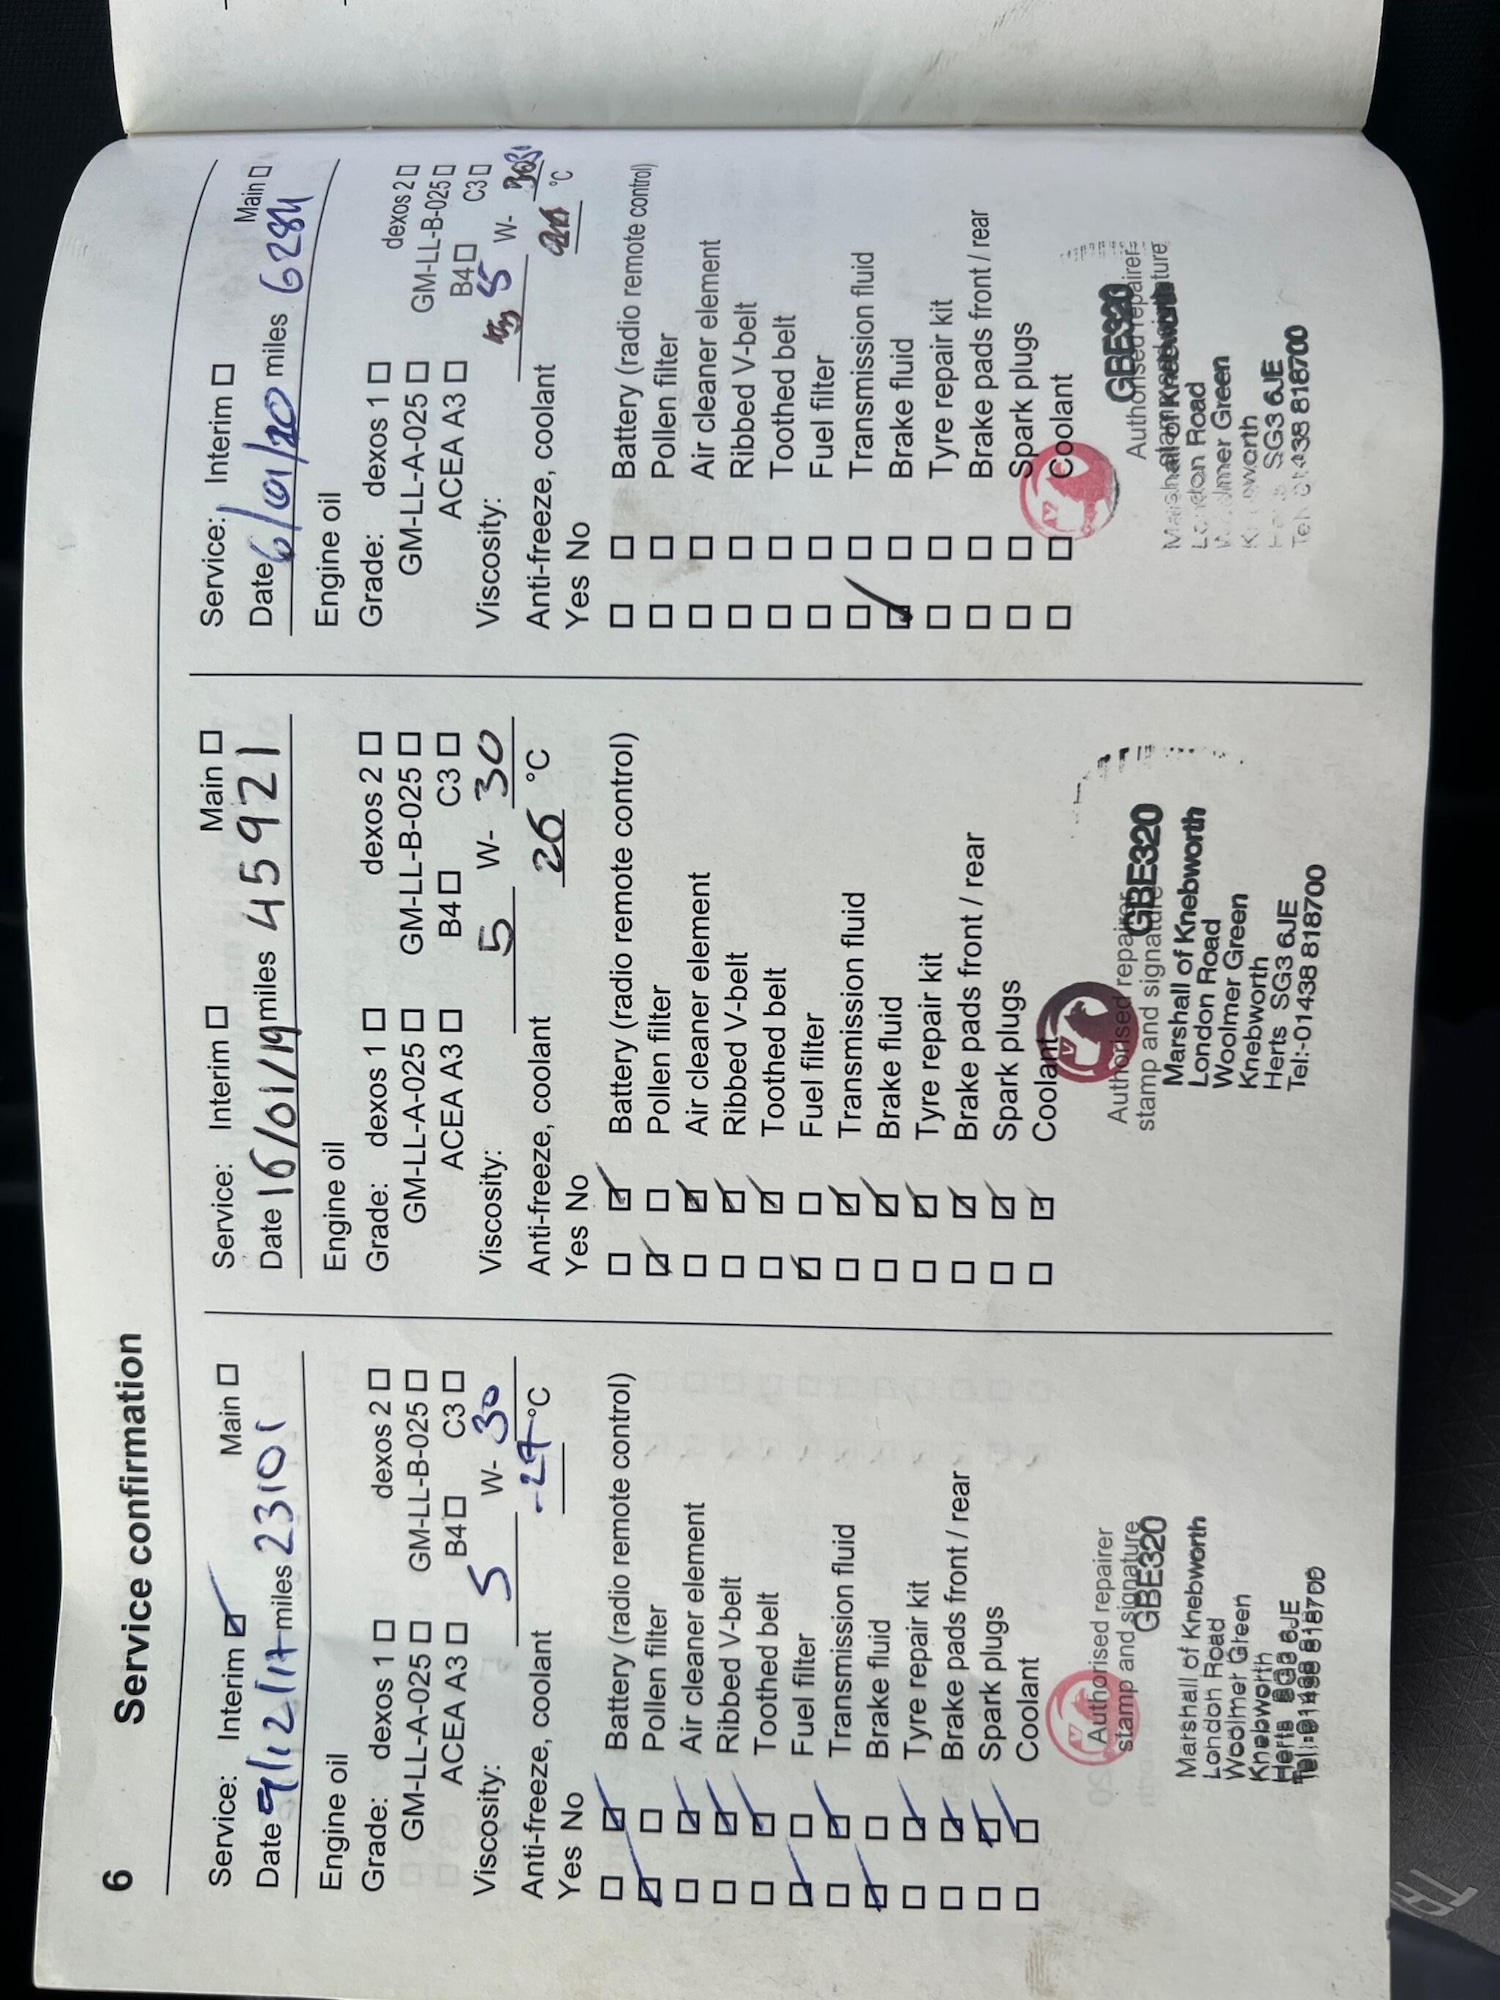 6 Service confirmation
Service: Interim ☑ Main ☐
Date 9/12/17 miles 23101
Engine oil
Grade: dexos 1 ☐ dexos 2 ☐
GM-LL-A-025 ☐ GM-LL-B-025 ☐
ACEA A3 ☐ B4 ☐ C3 ☐
Viscosity: 5 W- 30
Anti-freeze, coolant °C
Yes No
☐ ☑ Battery (radio remote control)
☑ ☐ Pollen filter
☐ ☑ Air cleaner element
☐ ☑ Ribbed V-belt
☐ ☑ Toothed belt
☑ ☐ Fuel filter
☐ ☑ Transmission fluid
☑ ☐ Brake fluid
☐ ☑ Tyre repair kit
☐ ☑ Brake pads front / rear
☐ ☑ Spark plugs
☐ ☑ Coolant
Authorised repairer
stamp and signature
GBE320
Marshall of Knebworth
London Road
Woolmer Green
Knebworth
Herts SG3 6JE
Tel:-01438 818700
Service: Interim ☐ Main ☐
Date 16/01/19 miles 45921
Engine oil
Grade: dexos 1 ☐ dexos 2 ☐
GM-LL-A-025 ☐ GM-LL-B-025 ☐
ACEA A3 ☐ B4 ☐ C3 ☐
Viscosity: 5 W- 30
Anti-freeze, coolant 26 °C
Yes No
☐ ☑ Battery (radio remote control)
☑ ☐ Pollen filter
☐ ☑ Air cleaner element
☐ ☑ Ribbed V-belt
☐ ☑ Toothed belt
☑ ☐ Fuel filter
☐ ☑ Transmission fluid
☐ ☑ Brake fluid
☐ ☑ Tyre repair kit
☐ ☑ Brake pads front / rear
☐ ☑ Spark plugs
☐ ☑ Coolant
Authorised repairer
stamp and signature
GBE320
Marshall of Knebworth
London Road
Woolmer Green
Knebworth
Herts SG3 6JE
Tel:-01438 818700
Service: Interim ☐ Main ☐
Date 6/01/20 miles 6284
Engine oil
Grade: dexos 1 ☐ dexos 2 ☐
GM-LL-A-025 ☐ GM-LL-B-025 ☐
ACEA A3 ☐ B4 ☐ C3 ☐
Viscosity: 5 W-
Anti-freeze, coolant °C
Yes No
☐ ☐ Battery (radio remote control)
☐ ☐ Pollen filter
☐ ☐ Air cleaner element
☐ ☐ Ribbed V-belt
☐ ☐ Toothed belt
☐ ☐ Fuel filter
☐ ☐ Transmission fluid
☑ ☐ Brake fluid
☐ ☐ Tyre repair kit
☐ ☐ Brake pads front / rear
☐ ☐ Spark plugs
☐ ☐ Coolant
Authorised repairer
stamp and signature
GBE320
Marshall of Knebworth
London Road
Woolmer Green
Knebworth
Herts SG3 6JE
Tel:-01438 818700